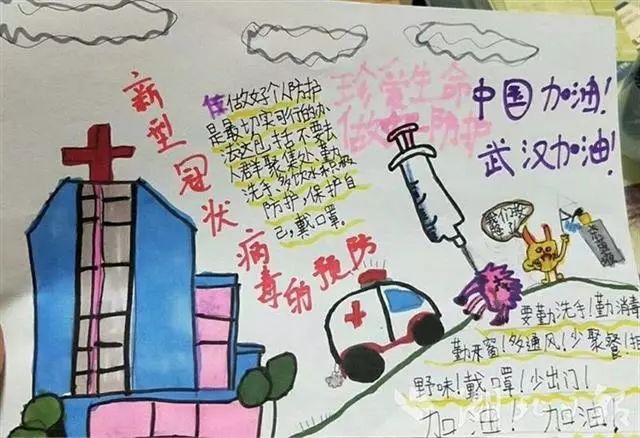 新型冠状
病毒的预防
做好个人防护
是最切实可行的办
法
人群聚集处,勤
洗手,多饮水
防护,保护自
己,戴口罩。
珍爱生命
做好防护
中国加油!
武汉加油!
要勤洗手!勤消毒
勤开窗!多通风!少聚餐!拒
野味!戴口罩!少出门!
加油!加油!